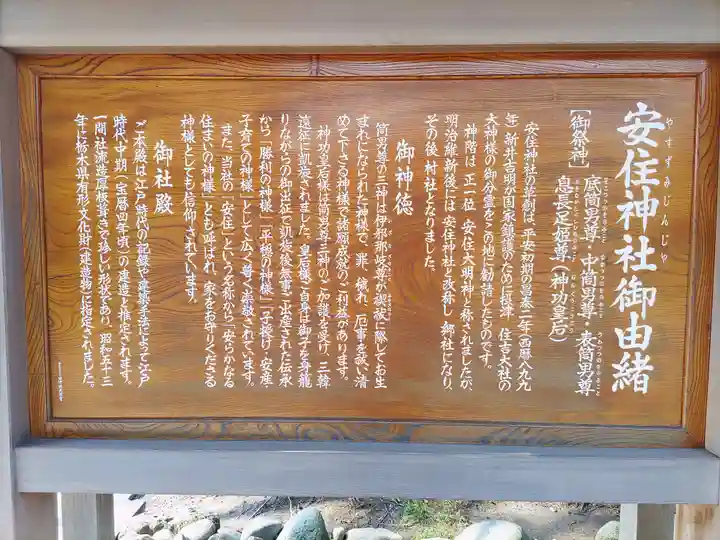 安住神社御由緒
やすずみじんじゃ
【御祭神】
底筒男尊・中筒男尊・表筒男尊
息長足姫尊（神功皇后）
安住神社の草創は、平安初期の昌泰二年（西暦八九九
年）新井吉明が国家鎮護のために摂津 住吉大社の
大神様の御分霊をこの地に勧請したものです。
神階は正一位、安住大明神と称されましたが、
明治維新後には、安住神社と改称し、郷社になり、
その後、村社となりました。
御神徳
筒男尊の三神は伊邪那岐尊が禊祓に際してお生
まれになられた神様で、罪、穢れ、厄事を祓い清
めて下さる神様で諸願成就のご利益があります。
神功皇后様は筒男尊三神のご加護を受け、三韓
遠征に凱旋されました。皇后様ご自身は御子を身籠
りながらの御出征で凱旋後無事ご出産された伝承
から「勝利の神様」「平穏の神様」「子授け・安産・
子育ての神様」として広く篤く崇敬されています。
また、当社の「安住」という名称から「安らかなる
住まいの神様」とも呼ばれ、家をお守りくださる
神様としても信仰されています。
御社殿
ご本殿は江戸時代の記録や建築手法によって江戸
時代 中期（宝暦四年頃）の建造と推定されます。
一間社流造厚板葺きで珍しい形状であり、昭和五十三
年に栃木県有形文化財（建造物）に指定されました。